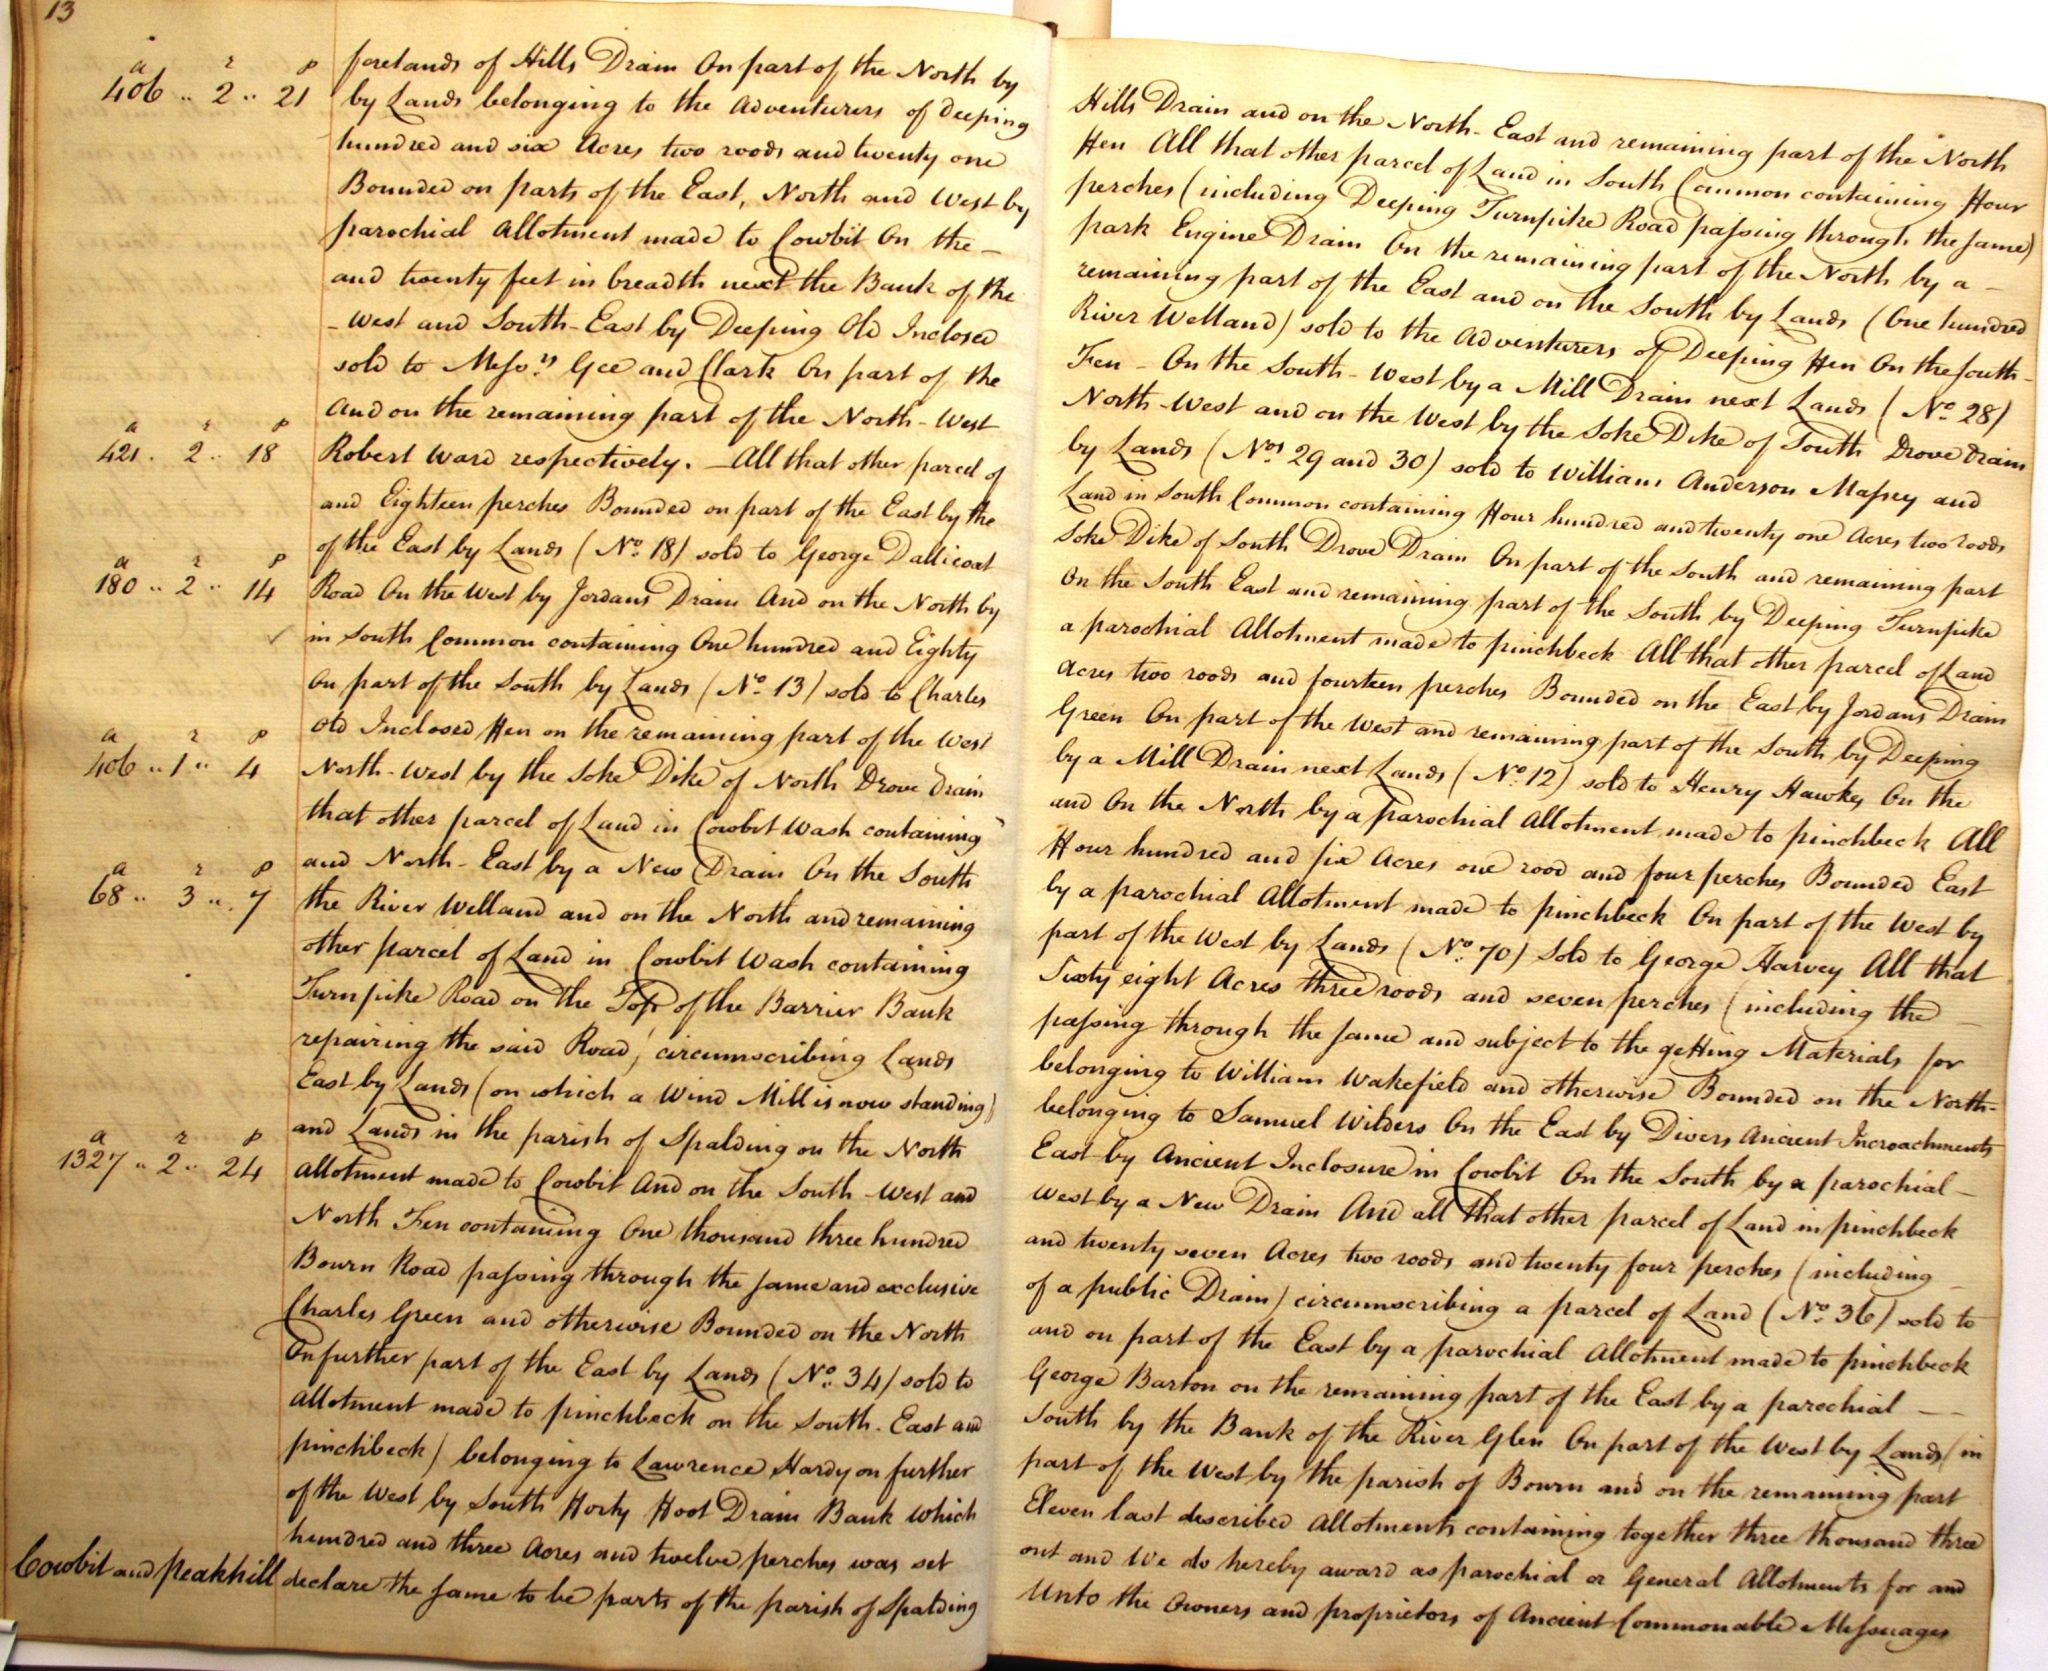 13
a r p
406 .. 2 .. 21
forelands of Hills Drain On part of the North by
Hills Drain and on the North-East and remaining part of the North
by Lands belonging to the Adventurers of Deeping
Fen All that other parcel of Land in South Common containing Four
hundred and six Acres two roods and twenty one
perches (including Deeping Turnpike Road passing through the same)
Bounded on parts of the East, North and West by
park Engine Drain On the remaining part of the North by a –
parochial Allotment made to Cowbit On the –
remaining part of the East and on the South by Lands (One hundred
and twenty feet in breadth next the Bank of the
River Welland) sold to the Adventurers of Deeping Fen On the South –
– West and South-East by Deeping Old Inclosed
Fen – On the South-West by a Mill Drain next Lands (No. 28)
sold to Messrs. Gee and Clark On part of the
North-West and on the West by the Soke Dike of South Drove Drain
And on the remaining part of the North-West
by Lands (Nos. 29 and 30) sold to William Anderson Massey and
a r p
421 . 2 .. 18
Robert Ward respectively. – All that other parcel of
Land in South Common containing Four hundred and twenty one Acres two roods
and Eighteen perches Bounded on part of the East by the
Soke Dike of South Drove Drain On part of the South and remaining part
of the East by Lands (No. 18) sold to George Dallicoat
On the South East and remaining part of the South by Deeping Turnpike
a r p
180 .. 2 .. 14
Road On the West by Jordans Drain And on the North by
a parochial Allotment made to pinchbeck All that other parcel of Land
in South Common containing One hundred and Eighty
Acres two roods and fourteen perches Bounded on the East by Jordans Drain
On part of the South by Lands (No. 13) sold to Charles
Green On part of the West and remaining part of the South by Deeping
Old Inclosed Fen on the remaining part of the West
by a Mill Drain next Lands (No. 12) sold to Henry Hawkes On the
a r p
406 .. 1 .. 4
North-West by the Soke Dike of North Drove Drain
and On the North by a parochial Allotment made to pinchbeck All
that other parcel of Land in Cowbit Wash containing
Four hundred and six Acres one rood and four perches Bounded East
and North-East by a New Drain On the South
by a parochial Allotment made to pinchbeck On part of the West by
a r p
68 .. 3 .. 7
the River Welland and on the North and remaining
part of the West by Lands (No. 70) Sold to George Harvey All that
other parcel of Land in Cowbit Wash containing
Sixty eight Acres three roods and seven perches (including the
Turnpike Road on the Top of the Barrier Bank
passing through the same and subject to the getting Materials for
repairing the said Road) circumscribing Lands
belonging to William Wakefield and otherwise Bounded on the North-
East by Lands (on which a Wind Mill is now standing)
belonging to Samuel Wilders On the East by Divers Ancient Incroachments
and Lands in the parish of Spalding on the North
East by Ancient Inclosure in Cowbit On the South by a parochial –
a r p
1327 .. 2 .. 24
Allotment made to Cowbit And on the South-West and
West by a New Drain And all that other parcel of Land in pinchbeck
North Fen containing One thousand three hundred
and twenty seven Acres two roods and twenty four perches (including
Bourn Road passing through the same and exclusive
of a public Drain) circumscribing a parcel of Land (No. 36) sold to
Charles Green and otherwise Bounded on the North
and on part of the East by a parochial Allotment made to pinchbeck
On further part of the East by Lands (No. 34) sold to
George Barton on the remaining part of the East by a parochial –
Allotment made to pinchbeck on the South-East and
South by the Bank of the River Glen On part of the West by Lands (in
pinchbeck) belonging to Lawrence Hardy on further
part of the West by the parish of Bourn and on the remaining part
of the West by South Forty Foot Drain Bank which
Eleven last described Allotments containing together three thousand three
hundred and three Acres and twelve perches was set
out and We do hereby award as parochial or General Allotments for and
Cowbit and Peakhill
declare the same to be parts of the parish of Spalding
Unto the Owners and proprietors of Ancient Commonable Messuages